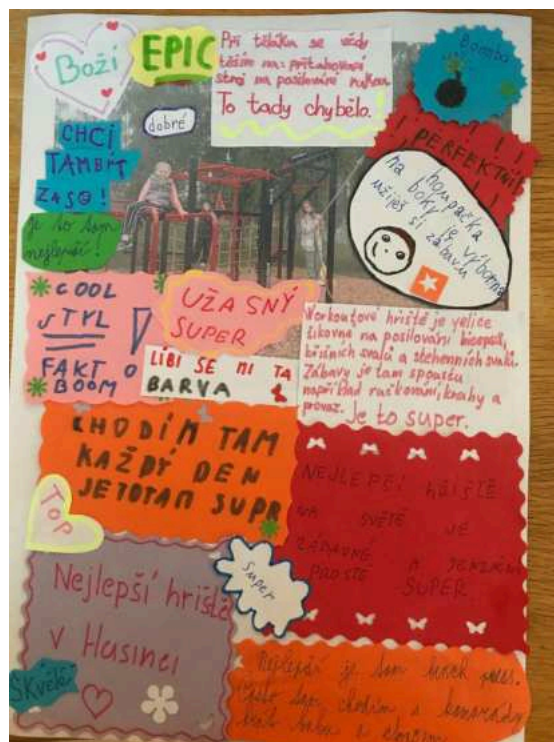 Boží
EPIC
Při těláku se vždy
těším na: přitahovací
stroj na posilování rukou.
To tady chybělo.
Bomba
dobré
CHCI
TAM BÝT
ZASO!
PERFEKTNÍ
houpačka
na boky je výborná
užiješ
si zábavu
Je to tam
nejlepší!
COOL
STYL
FAKT O
BOOM
UŽASNÝ
SUPER
LÍBI SE MI TA
BARVA
Workoutové hřiště je velice
šikovné na posilování bicepsů,
břišních svalů a stehenních svalů.
Zábavy je tam spoustu
například ručkování, kruhy a
provaz. Je to super.
CHODÍM TAM
KAŽDÝ DEN
JE TO TAM SUPR
NEJLEPŠÍ hŘIŠTĚ
NA SVĚTĚ JE
ZÁBAVNÉ A
PROSTĚ
SUPER
TOP
Super
Nejlepší hriště
v Husinci
SKvělé
Nejlepší je tam
chodím s kamarády